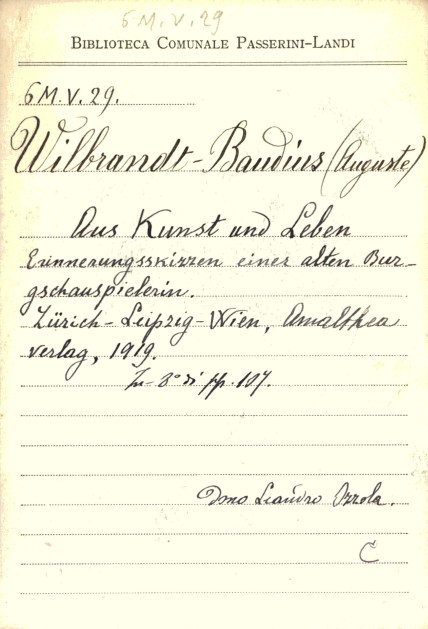 6 M. V. 29
BIBLIOTECA COMUNALE PASSERINI-LANDI
6 M. V. 29.
Wilbrandt-Baudius (Auguste)
Aus Kunst und Leben
Erinnerungsskizzen einer alten Bur-
gschauspielerin.
Zürich-Leipzig-Wien, Amalthea
verlag, 1919.
In-8° di pp. 107.
Dono Leandro Ozzola.
C